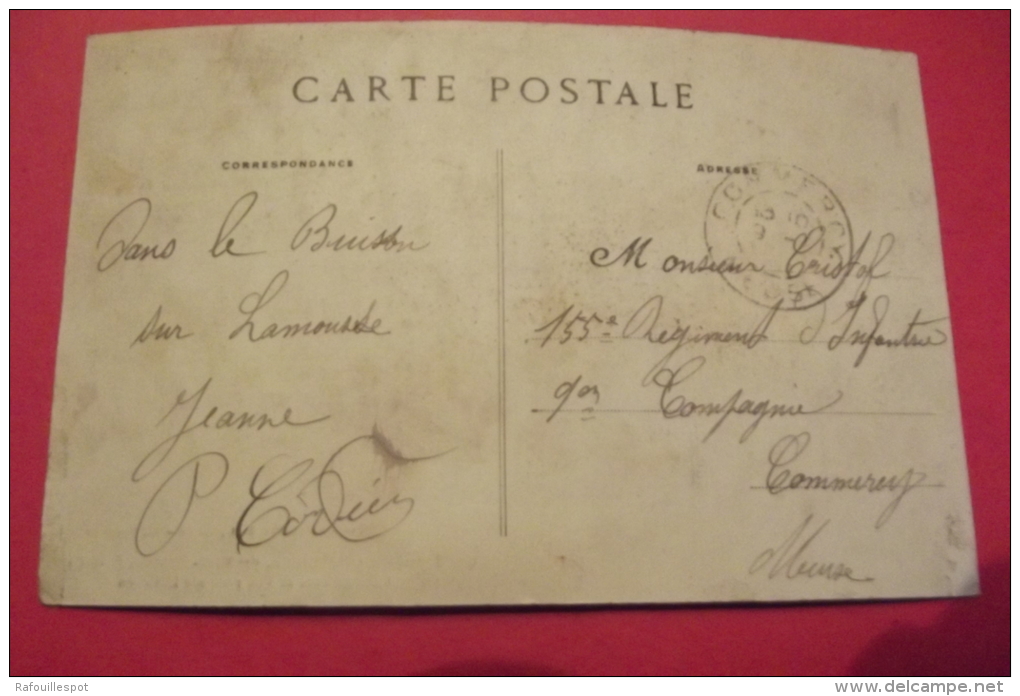 CARTE POSTALE
CORRESPONDANCE
Dans le Buisson
sur Lamousse
Jeanne
P
ADRESSE
COMMERCY
Monsieur Cristof
155e Régiment d'Infantrie
9em Compagnie
Commercy
Meuse
Rafouillespot
www.delcampe.net